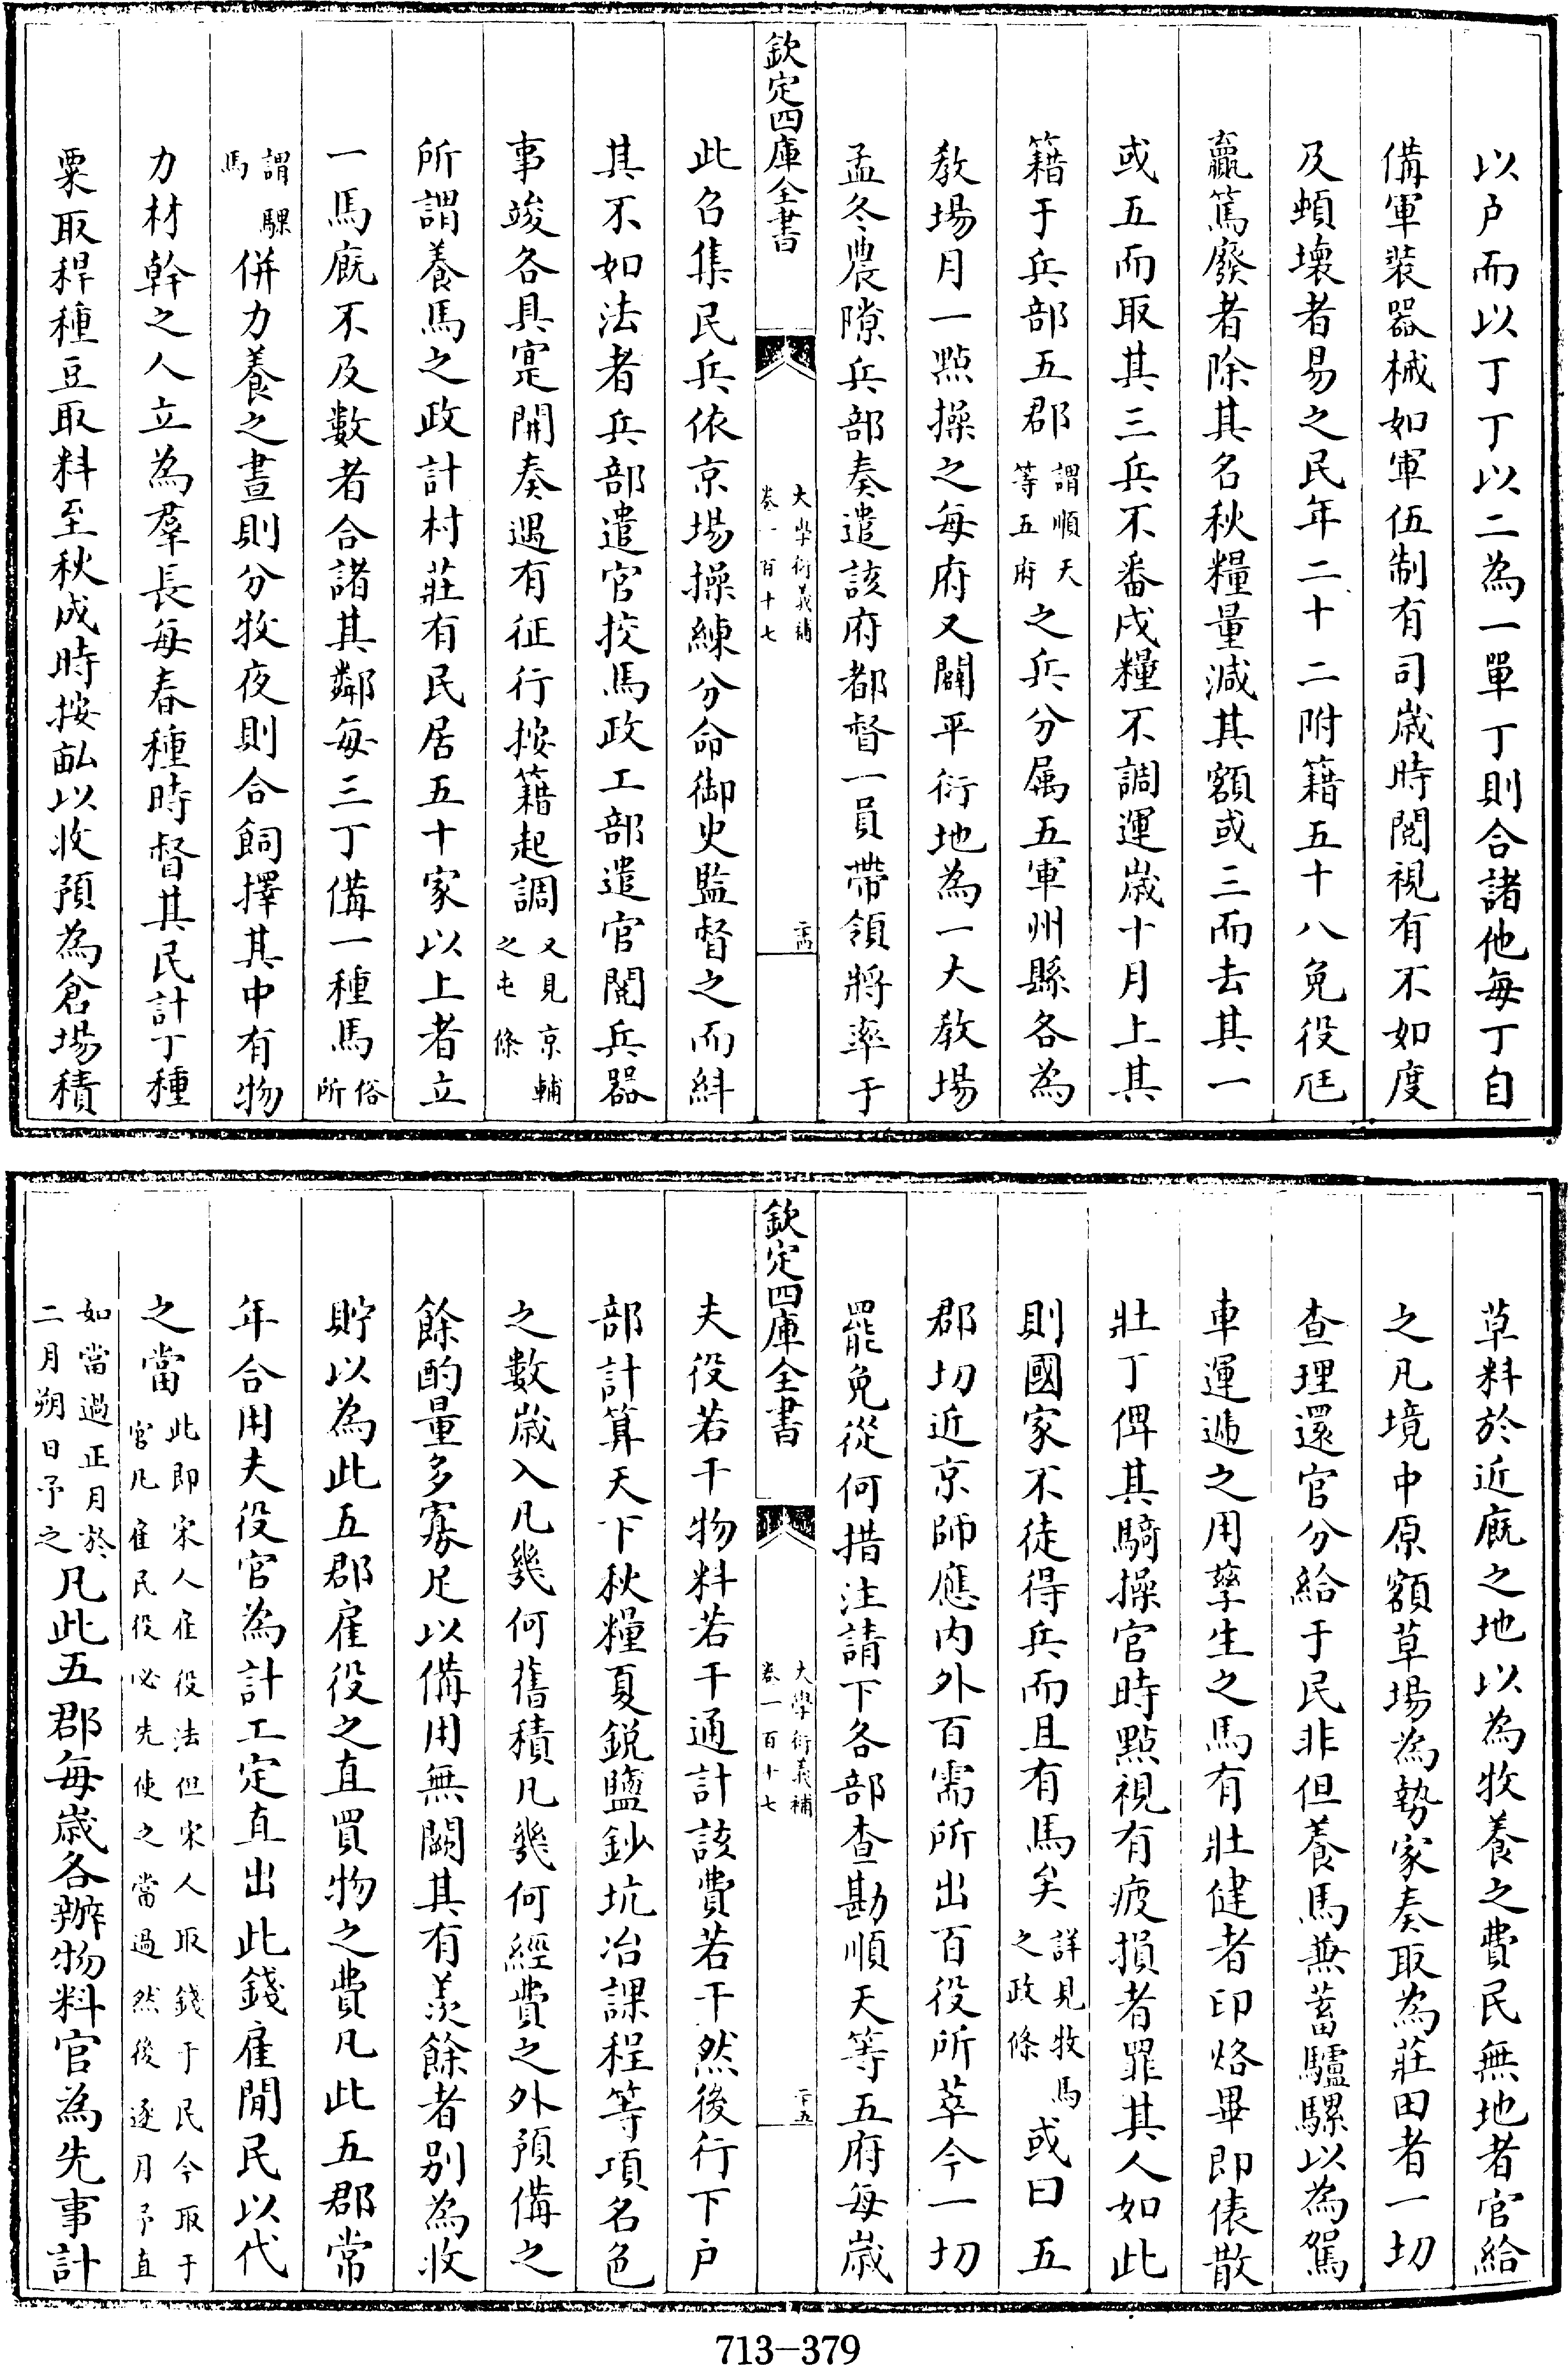 以户而以丁丁以二為一單丁則合諸他每丁自
備軍裝器械如軍伍制有司歲時閱視有不如度
及蝢壞者易之民年二十二附籍五十八免役尫
羸篤廢者除其名秋糧量減其額或三而去其一
或五而取其三兵不番戍糧不調運歲十月上其
籍于兵部五郡謂順天等五府之兵分属五軍州縣各為
教場月一㸃操之每府又闢平衍地為一大教場
孟冬農隙兵部奏遣該府都督一員帶領將率于
欽定四庫全書 大學衍義補 卷一百十七 二十四
此召集民兵依京場操練分命御史監督之而糾
其不如法者兵部遣官挍馬政工部遣官閱兵器
事竣各具寔開奏遇有征行按籍起調又見京輔之屯條
所謂養馬之政計村莊有民居五十家以上者立
一馬廐不及數者合諸其鄰每三丁備一種馬俗所
謂騍馬併力養之晝則分牧夜則合飼擇其中有物
力材幹之人立為羣長每春種時督其民計丁種
粟取稈種豆取料至秋成時按畝以收預為倉場積
草料於近廐之地以為牧養之費民無地者官給
之凡境中原額草場為勢家奏取為莊田者一切
查理還官分給于民非但養馬兼蓄驢騾以為駕
車運遞之用孳生之馬有壯健者印烙畢即俵散
壯丁俾其騎操官時㸃視有疲損者罪其人如此
則國家不徒得兵而且有馬矣詳見牧馬之政條或曰五
郡切近京師應内外百需所出百役所萃今一切
罷免從何措注請下各部查勘順天等五府每歲
欽定四庫全書 大學衍義補 卷一百十七 二十五
夫役若干物料若干通計該費若干然後行下户
部計算天下秋糧夏銳鹽鈔坑冶課程等項名色
之數歲入凡幾何舊積凡幾何經費之外預備之
餘酌量多寡足以備用無闕其有羨餘者别為收
貯以為此五郡雇役之直買物之費凡此五郡常
年合用夫役官為計工定直出此錢雇閒民以代
之當此即宋人雇役法但宋人取錢于民今取于官凡雇民役必先使之當過然後逐月予直
如當過正月於二月朔日予之凡此五郡每歲各辦物料官為先事計
713-379